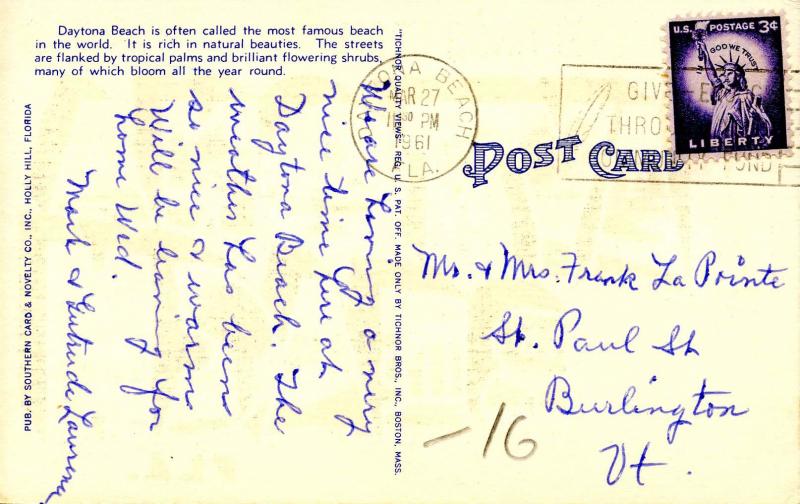 Daytona Beach is often called the most famous beach
in the world. It is rich in natural beauties. The streets
are flanked by tropical palms and brilliant flowering shrubs,
many of which bloom all the year round.
PUB. BY SOUTHERN CARD & NOVELTY CO., INC., HOLLY HILL, FLORIDA
We are having a very
nice time here at
Daytona Beach. The
weather has been
so nice & warm
Will be leaving for
home Wed.
Mark & Gertrude
"TICHNOR QUALITY VIEWS" REG. U. S. PAT. OFF. MADE ONLY BY TICHNOR BROS., INC., BOSTON, MASS.
DAYTONA BEACH
MAR 27
PM
1961
FLA.
GIVE
THRO
FUND
U.S. POSTAGE 3¢
IN GOD WE TRUST
LIBERTY
POST CARD
Mr. & Mrs. Frank La Pointe
St. Paul St
Burlington
Vt.
-16